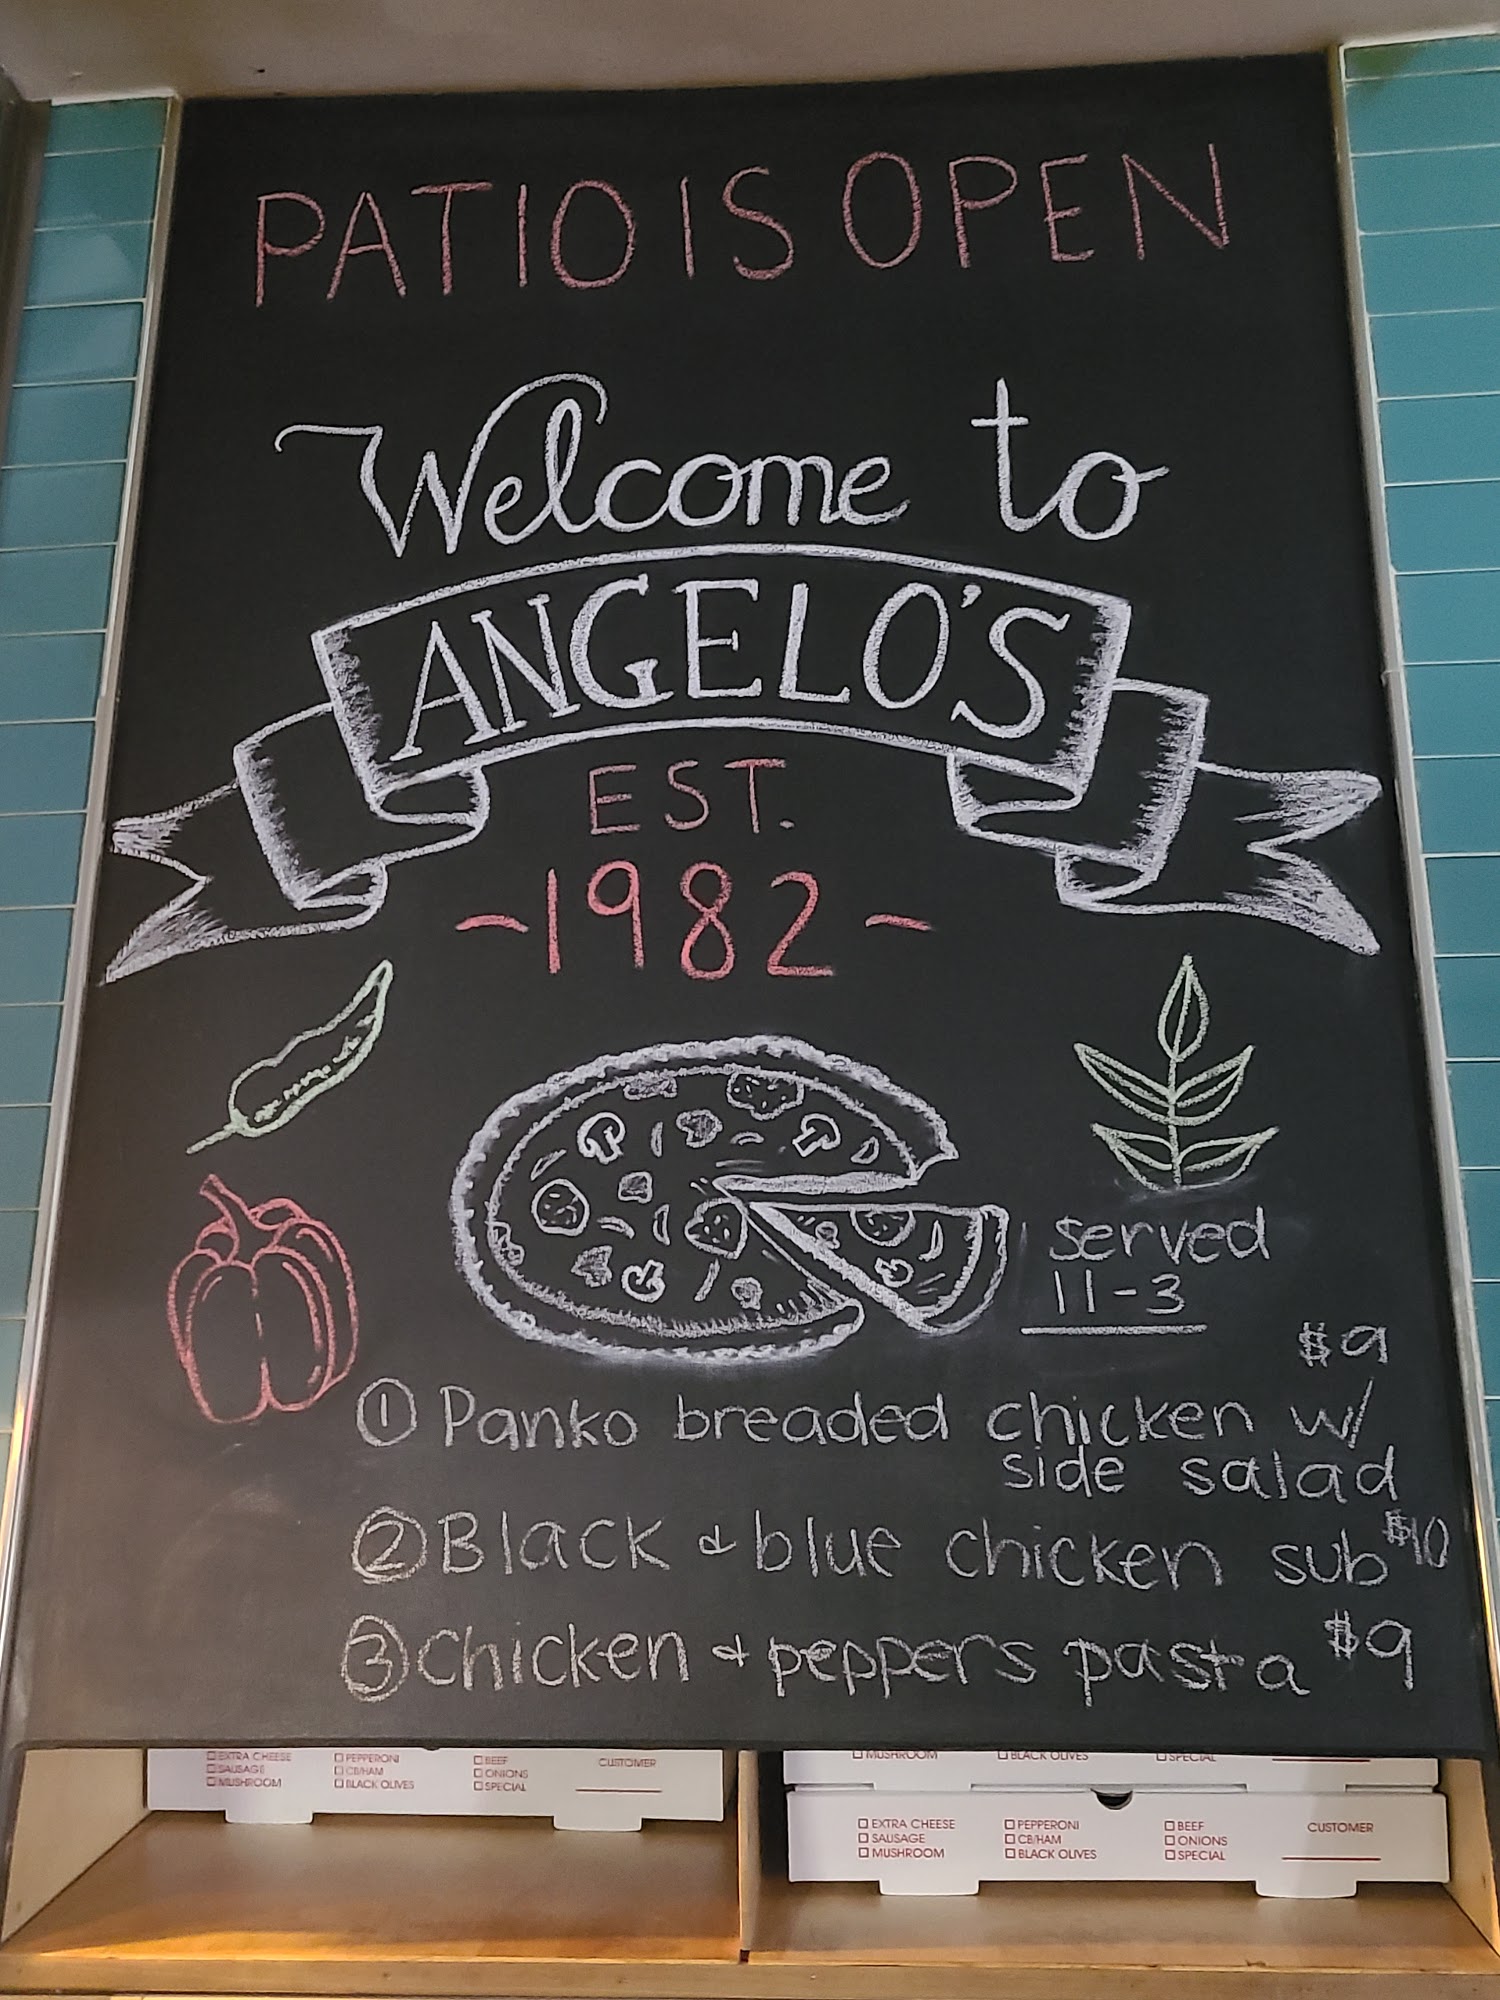 PATIO IS OPEN
Welcome to
ANGELO'S
EST.
-1982-
served
11-3
$9
① Panko breaded chicken w/
side salad
② Black & blue chicken sub $10
③ Chicken & peppers pasta $9
EXTRA CHEESE PEPPERONI BEEF CUSTOMER
SAUSAGE CB/HAM ONIONS
MUSHROOM BLACK OLIVES SPECIAL
MUSHROOM BLACK OLIVES SPECIAL
EXTRA CHEESE PEPPERONI BEEF CUSTOMER
SAUSAGE CB/HAM ONIONS
MUSHROOM BLACK OLIVES SPECIAL